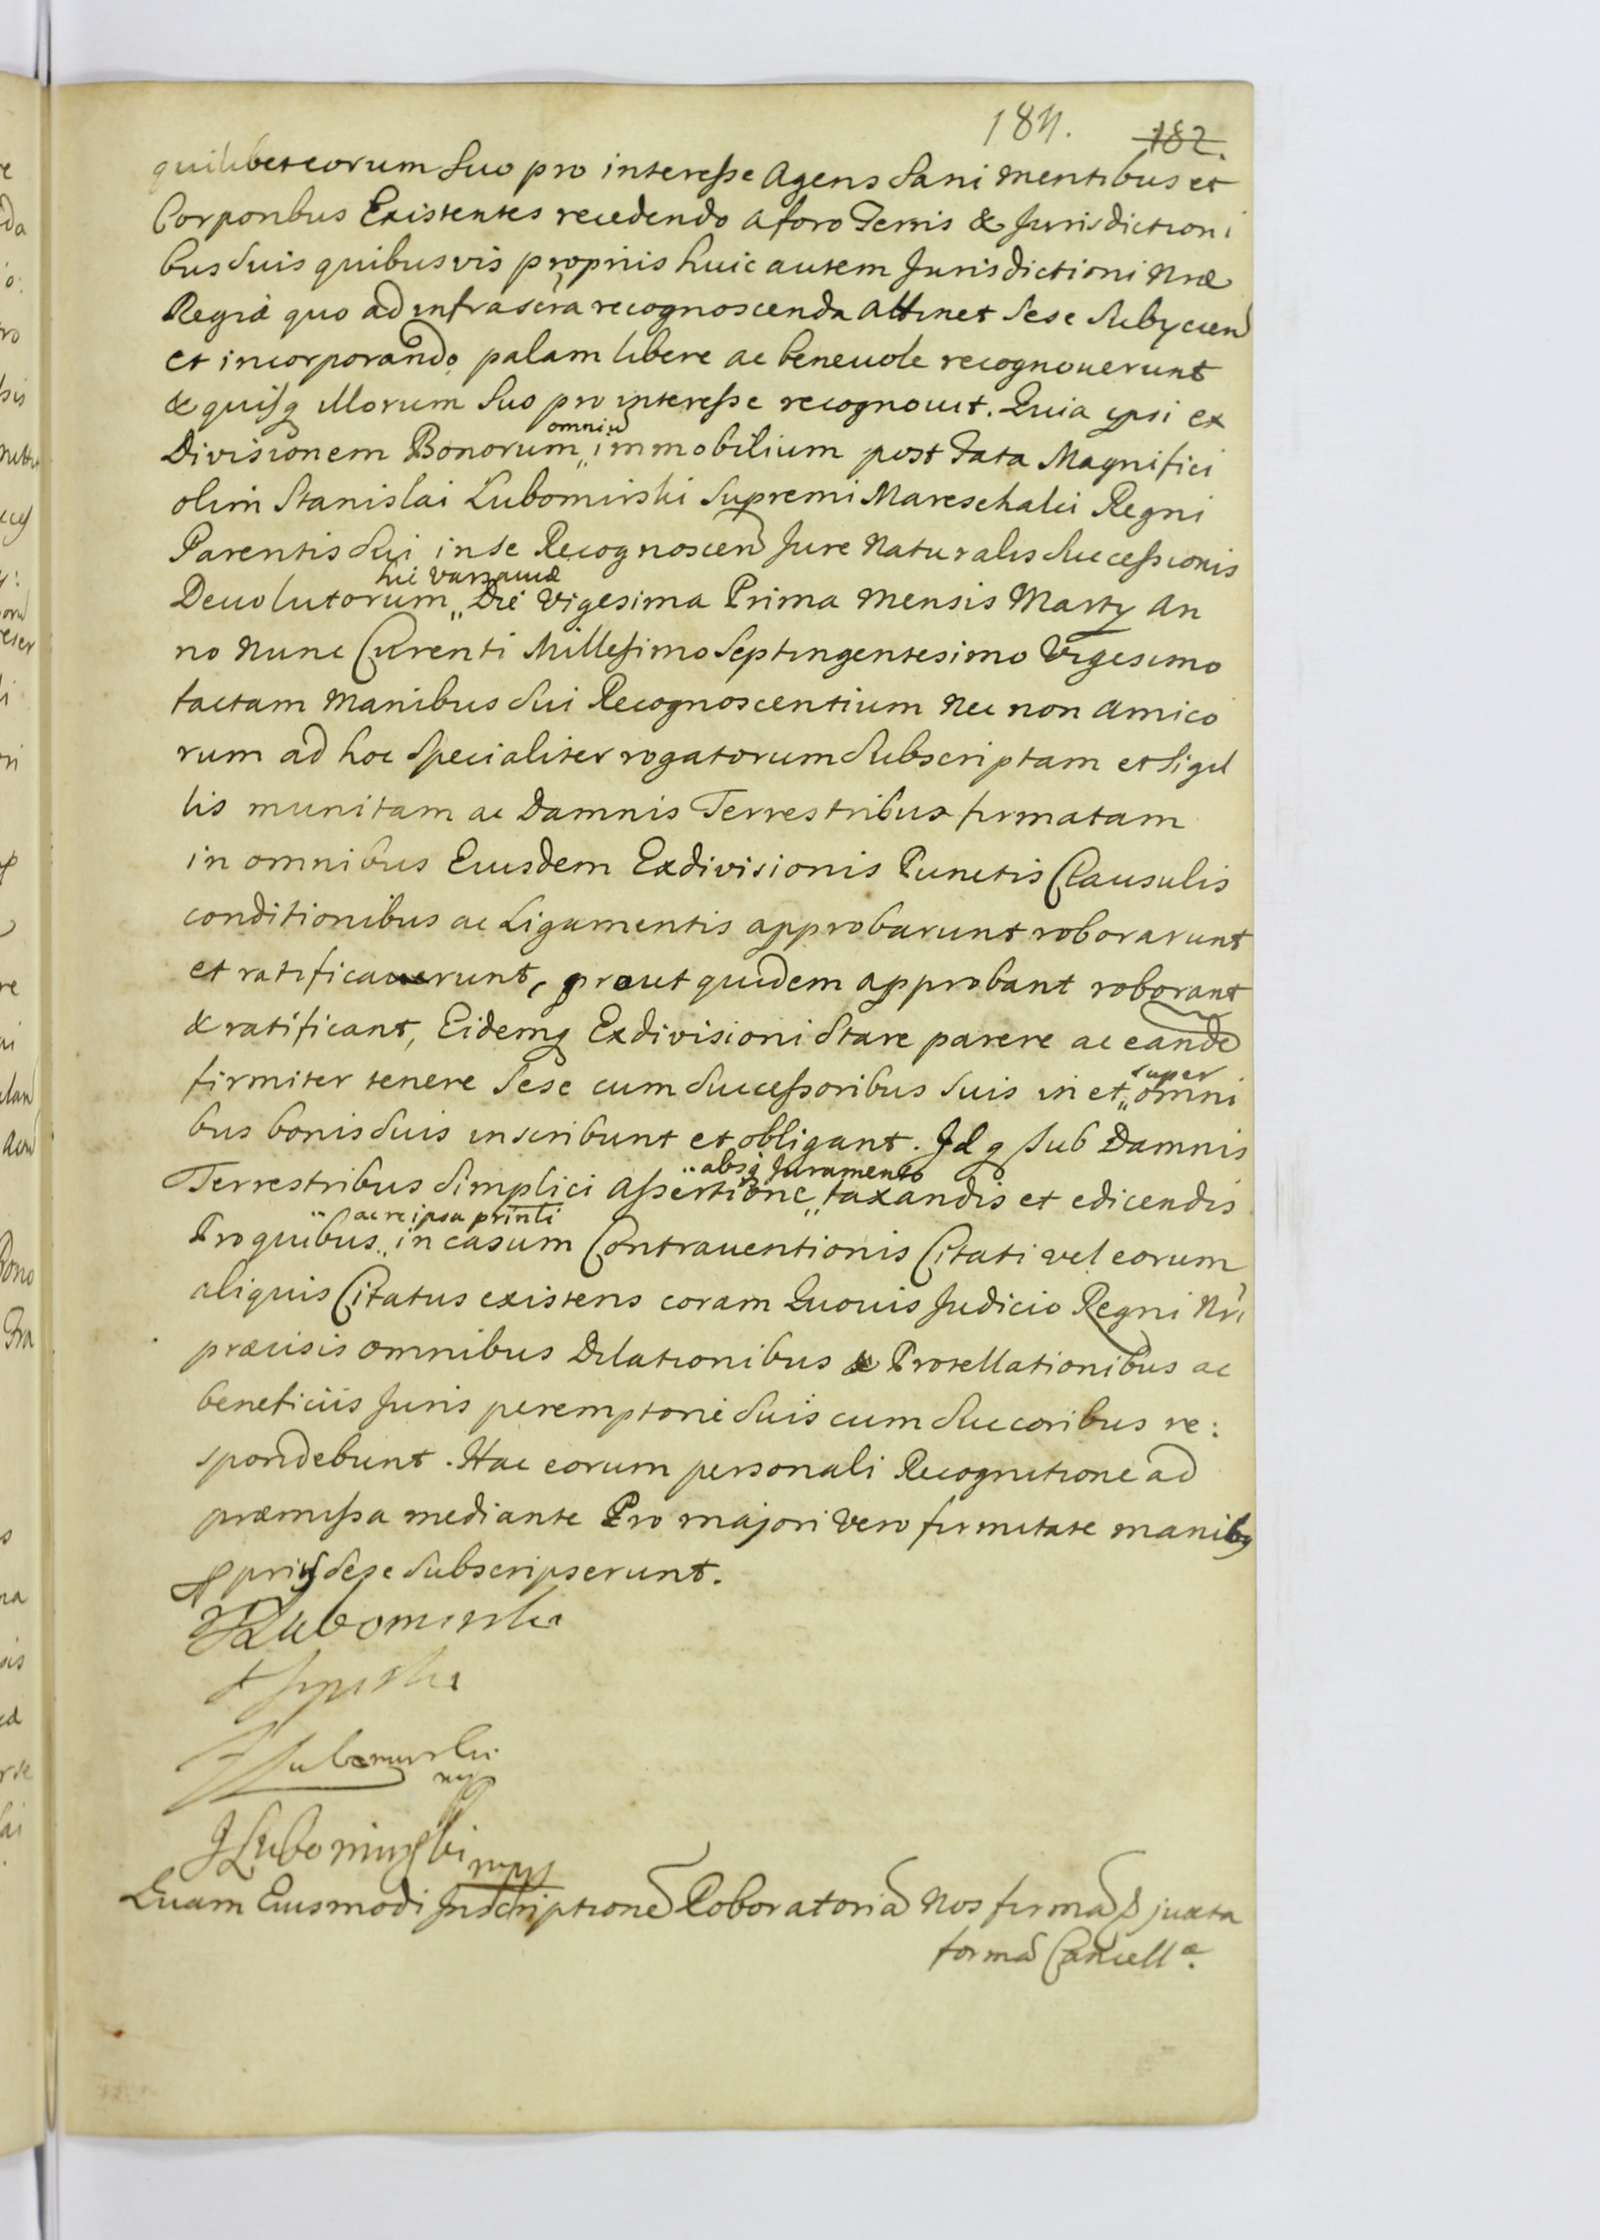 184. 182.
quilibet eorum suo pro interesse Agens Sani mentibus et
Corporibus Existentes recedendo a foro Terris & Jurisdictioni
bus suis quibusvis proprijs huic autem Jurisdictioni Nræ
Regiæ quo ad infrascra recognoscenda Attinet Sese Subycien
et incorporando palam libere ac beneuole recognouerunt
& quisq illorum suo pro interesse recognouit. Quia ipsi ex
Divisionem Bonorum „ omniu immobilium post Fata Magnifici
olim Stanislai Lubomirski Supremi Mareschalci Regni
Parentis Sui in se Recognoscen Jure Naturalis Successionis
Deuolutorum „ hic Varsauiæ Die Vigesima Prima Mensis Marty An
no Nunc Curenti Millesimo Septingentesimo Vigesimo
factam Manibus Sui Recognoscentium Nec non Amico
rum ad hoc Specialiter rogatorum Subscriptam et Sigil
lis munitam ac Damnis Terrestribus firmatam
in omnibus Eiusdem Exdivisionis Punctis Clausulis
conditionibus ac Ligamentis approbarunt roborarunt
et ratificauerunt, prout quidem approbant roborant
& ratificant, Eidemq Exdivisioni Stare parere ac eande
firmiter tenere Sese cum Successoribus Suis in et „ super omni
bus bonis Suis inscribunt et obligant. Idq sub Damnis
Terrestribus Simplici Assertione „ absq Juramento taxandis et edicendis
Pro quibus „ ac re ipsa prinli in casum Contrauentionis Citati vel eorum
aliquis Citatus existens coram Quouis Judicio Regni Nri
præcisis omnibus Dilationibus & Protellationibus ac
beneficiis Juris peremptorie Suis cum Succoribus re:
spondebunt. Hac eorum personali Recognitione ad
præmissa mediante Pro majori Vero firmitate manibq
pprijs Sese Subscripserunt.
Lubomirska
Lubomirski
mp
J Lubomirski mpp
Quam Eiusmodi Inscriptione Roboratoria Nos firma & juxta
forma Cancellæ.